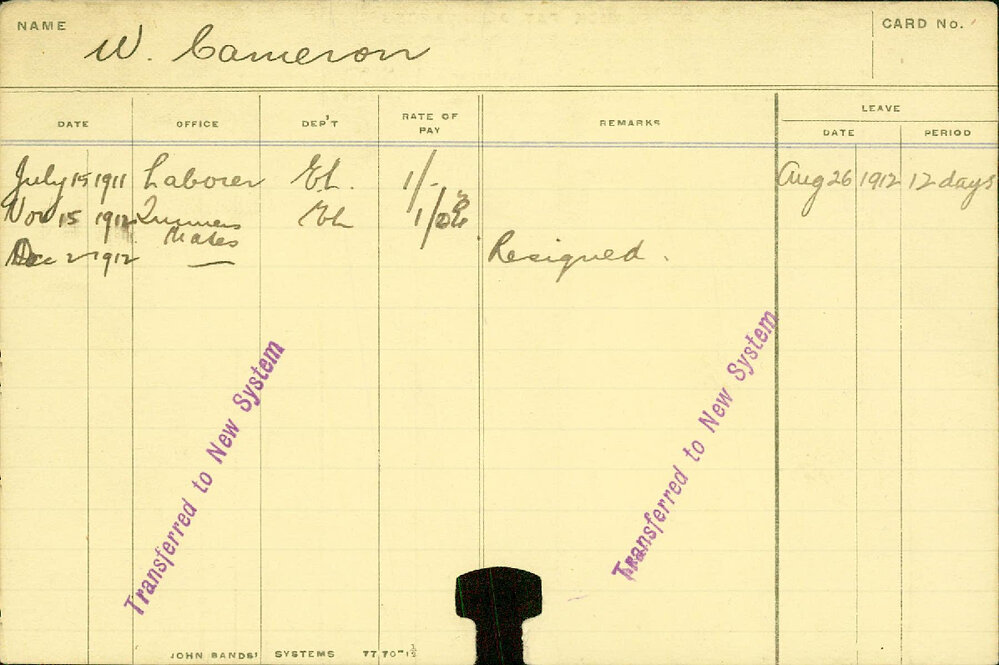 NAME W. Cameron CARD No.
DATE OFFICE DEP'T RATE OF PAY REMARKS LEAVE
DATE PERIOD
July 15 1911 Laborer El. 1/- Aug 26 1912 12 days
Nov 15 1912 El 1/
Mates
Dec 2 1912 — Resigned.
Transferred to New System
Transferred to New System
JOHN SANDS' SYSTEMS 7770-½